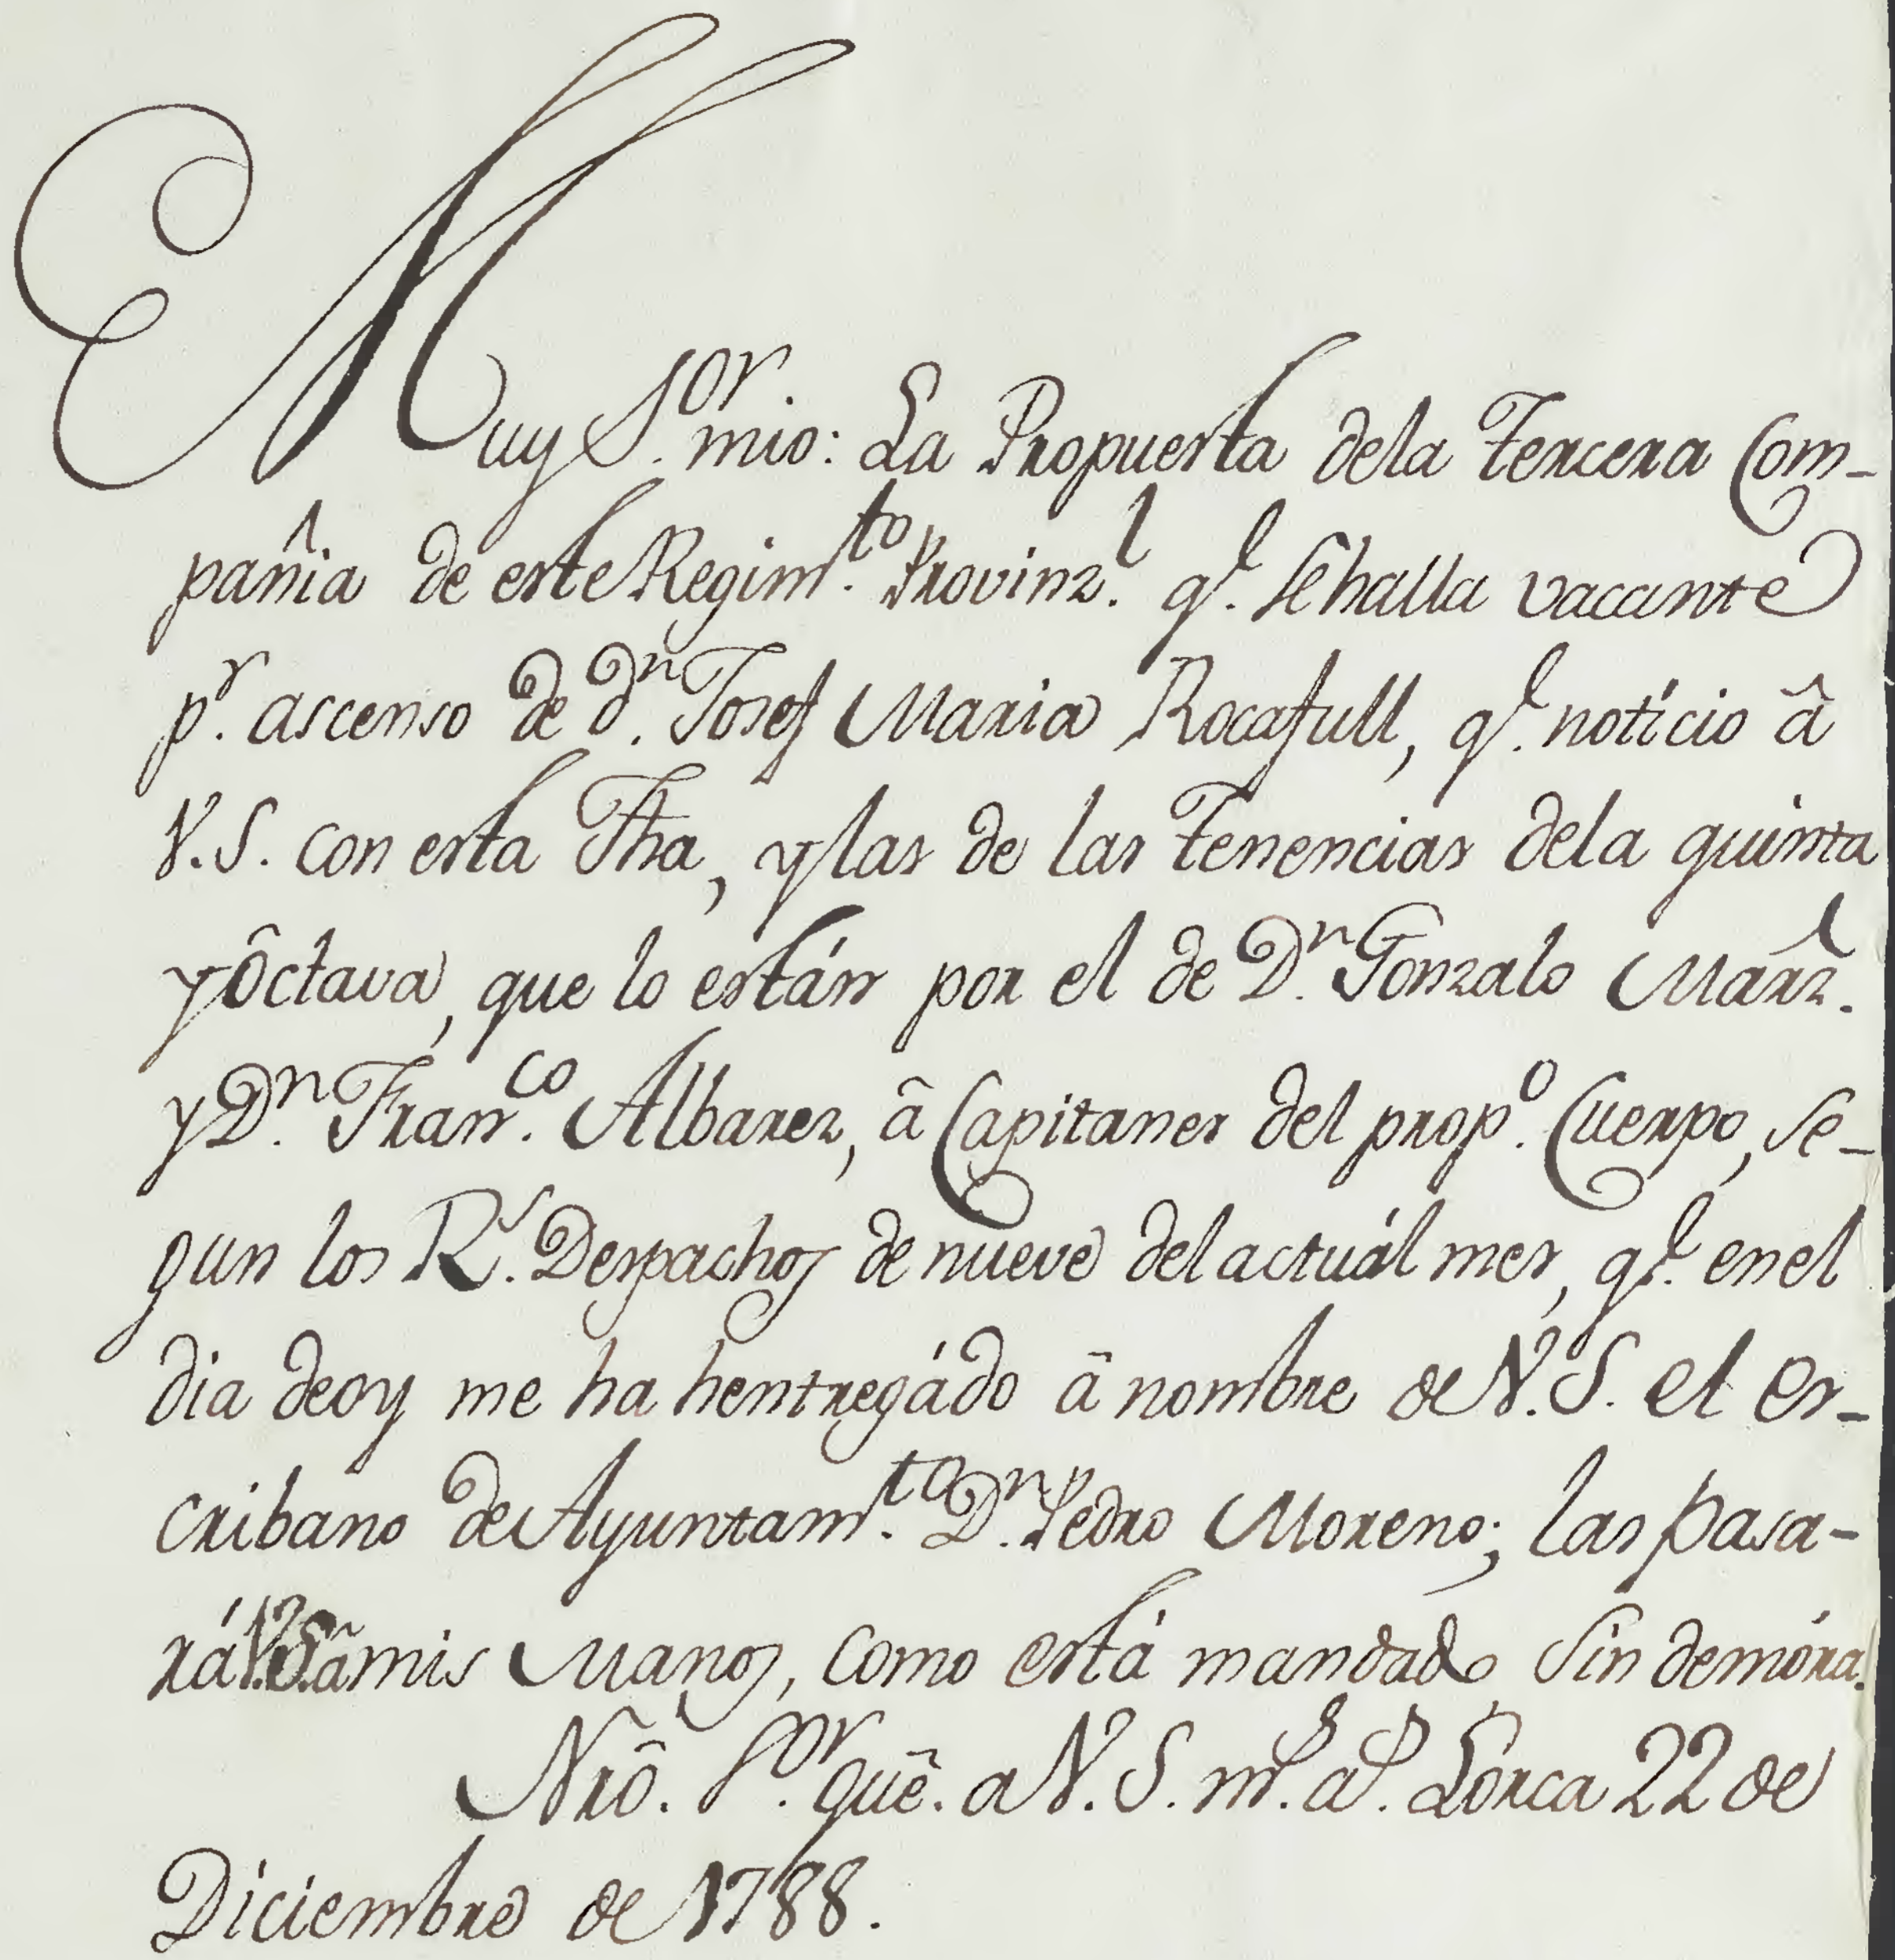 Muy S.or mio: La Propuesta dela Tercera Com-
pañia de este Regim.to Provinz.l q.e se halla vacante
p.r ascenso de d.n Josef Maria Rocafull, q.e noticio â
V.S. con esta Fha, y las de las Tenencias dela quinta
y ôctava, que lo están por el de D.n Gonzalo
y D.n Fran.co Albarez, â Capitanes del prop.o Cuerpo, se-
gun los R.s Despachos de nueve del actuál mes, q.e en el
dia deoy me ha hentregádo â nombre de V.S. el es-
cribano de Ayuntam.to D.n Pedro Moreno; las pasa-
rá V.S. â mis Manos, como está mandado, sin demóra.
Nrô. S.or guê. a V.S. m.s a.s Lorca 22 de
Diciembre de 1788.